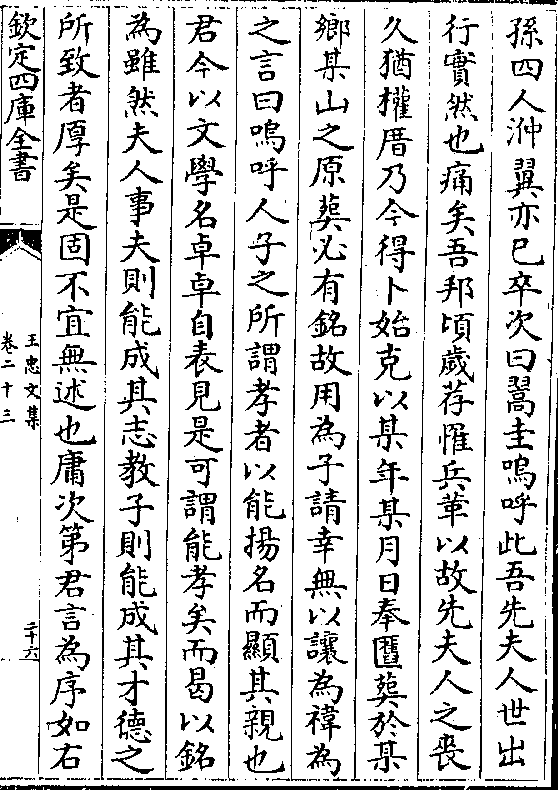 孫四人沖翼亦已卒次曰翯圭嗚呼此吾先夫人世出
行實然也痛矣吾邦頃歲荐懼兵革以故先夫人之喪
久猶權厝乃今得卜始克以某年某月日奉匶葬於某
鄉某山之原葬必有銘故用為子請幸無以讓為禕為
之言曰嗚呼人子之所謂孝者以能揚名而顯其親也
君今以文學名卓卓自表見是可謂能孝矣而曷以銘
為雖然夫人事夫則能成其志教子則能成其才德之
所致者厚矣是固不宜無述也庸次第君言為序如右
欽定四庫全書
王忠文集
卷二十三
二十六